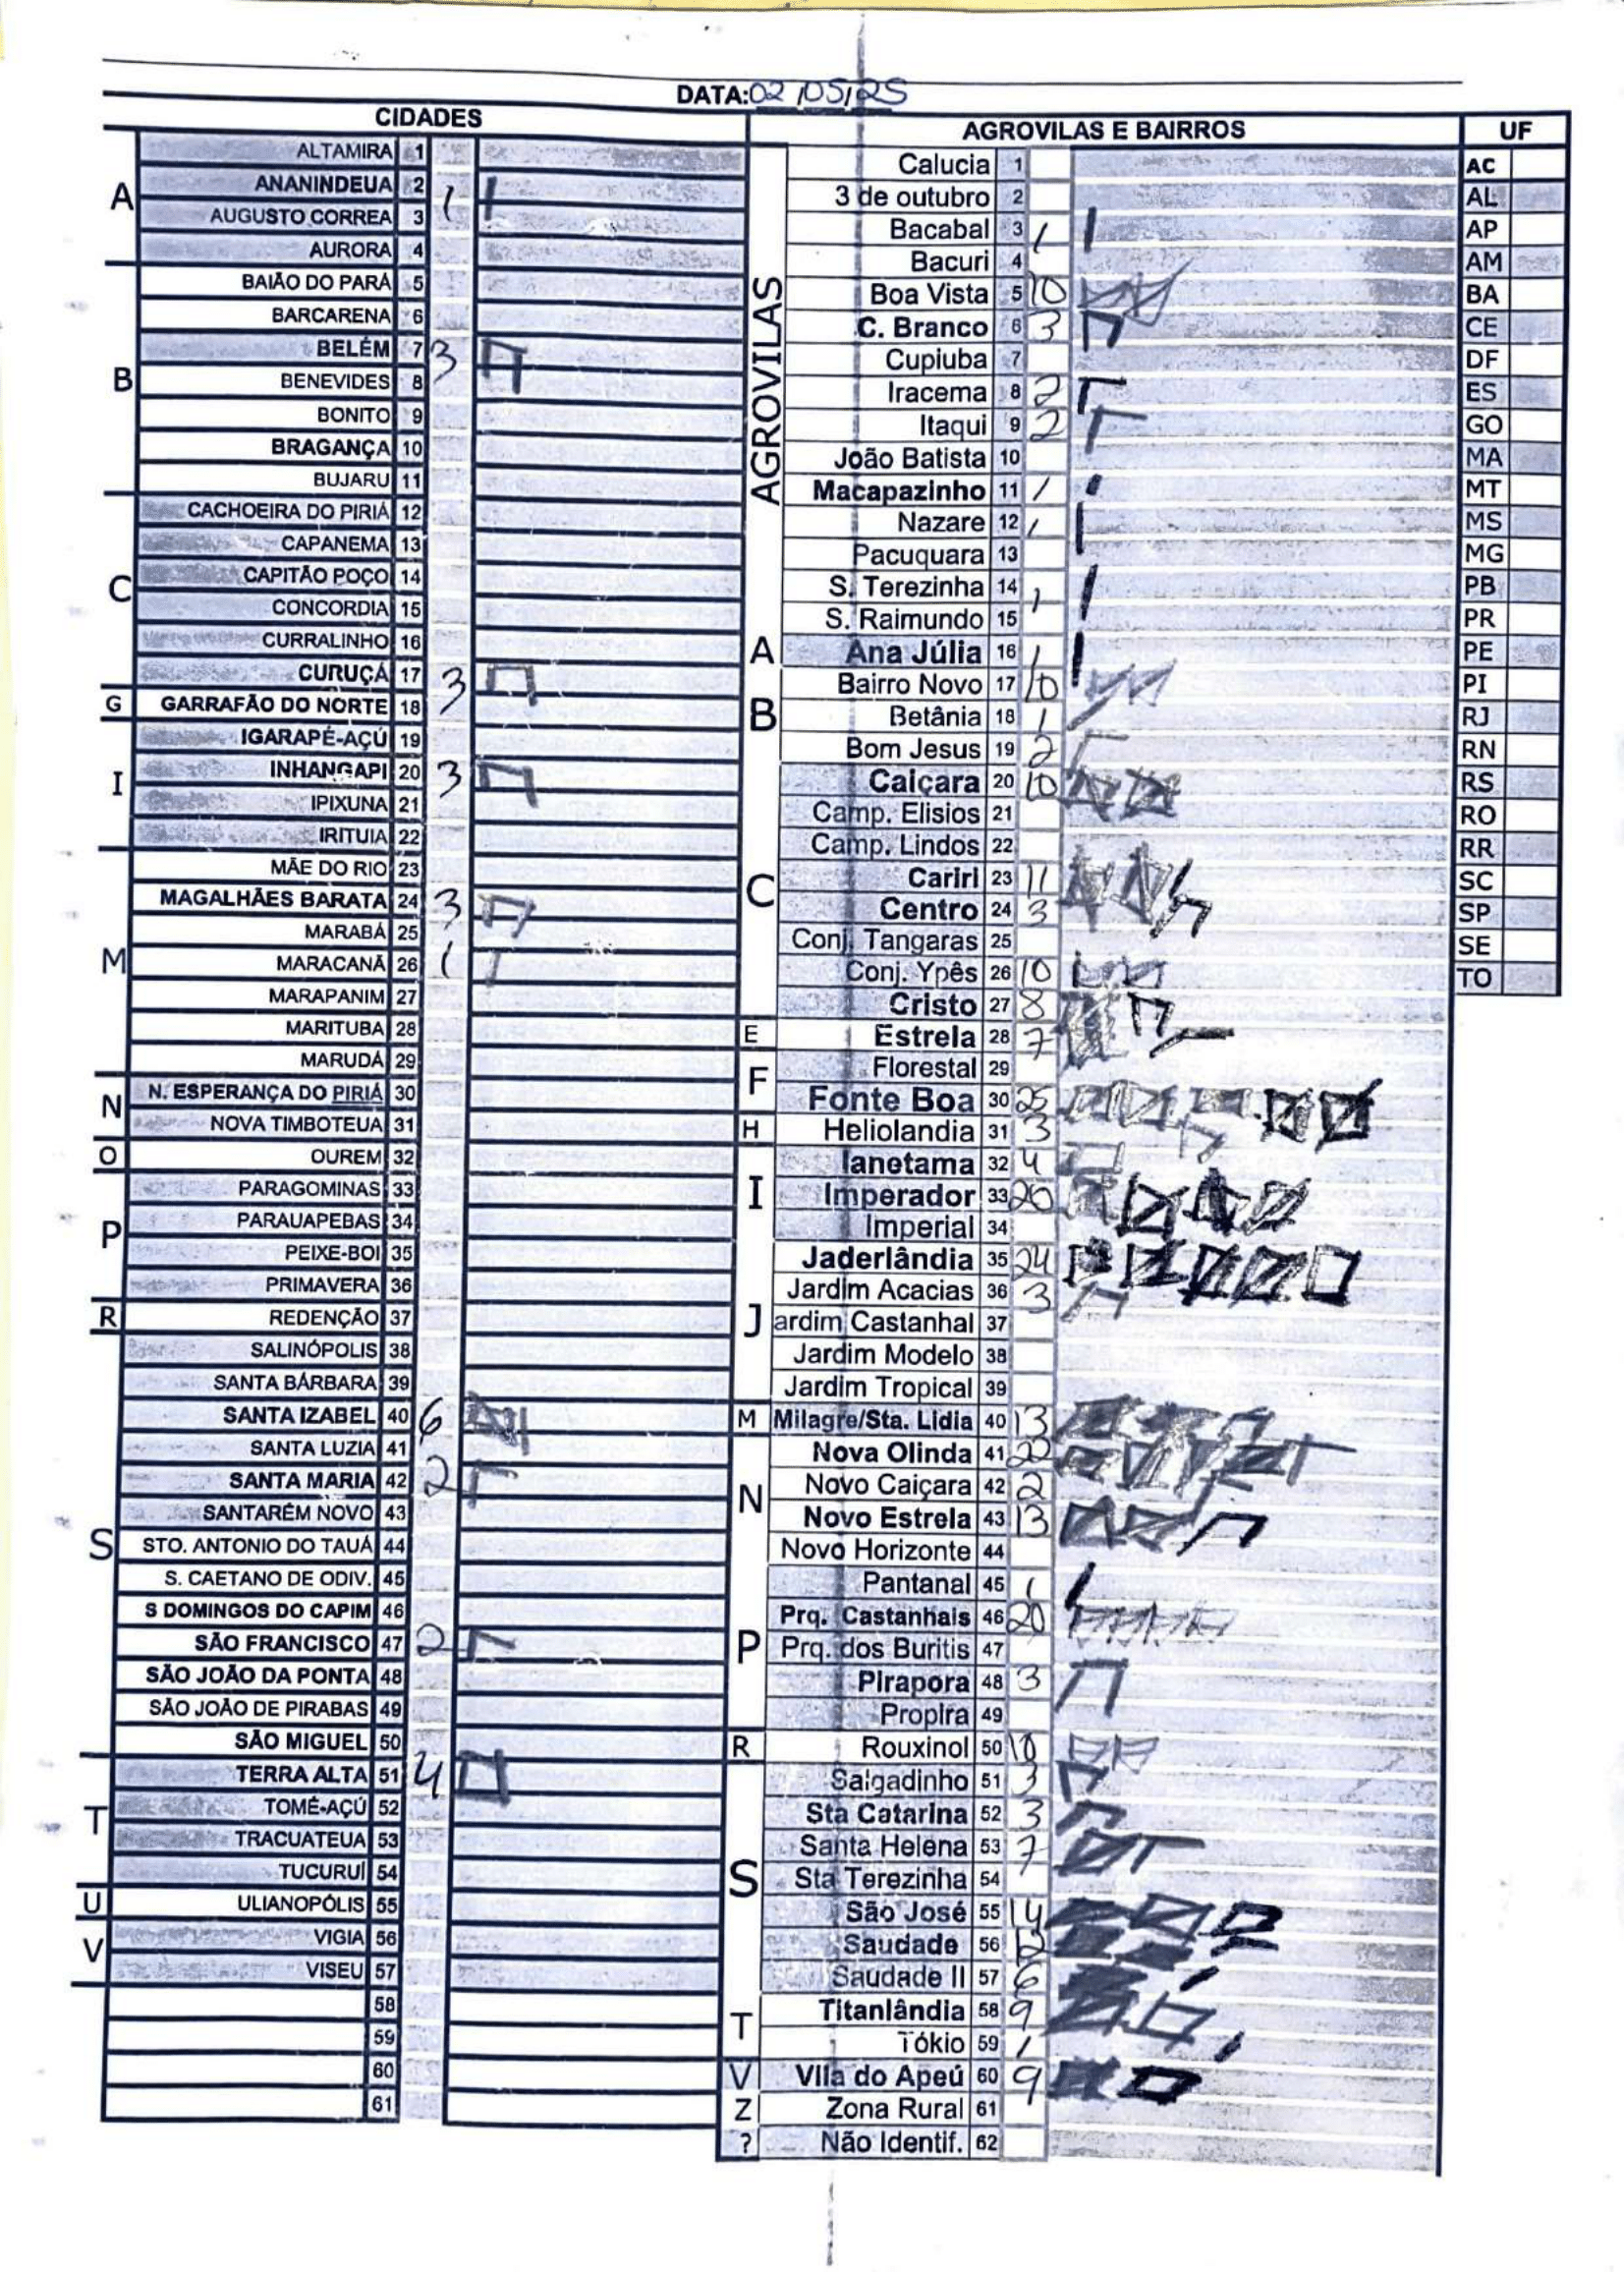 DATA:02/05/25
CIDADES
A
ALTAMIRA 1
ANANINDEUA 2 1
AUGUSTO CORREA 3
AURORA 4
B
BAIÃO DO PARÁ 5
BARCARENA 6
BELÉM 7 3
BENEVIDES 8
BONITO 9
BRAGANÇA 10
BUJARU 11
C
CACHOEIRA DO PIRIÁ 12
CAPANEMA 13
CAPITÃO POÇO 14
CONCORDIA 15
CURRALINHO 16
CURUÇÁ 17 3
G GARRAFÃO DO NORTE 18
I
IGARAPÉ-AÇÚ 19
INHANGAPI 20 3
IPIXUNA 21
IRITUIA 22
M
MÃE DO RIO 23
MAGALHÃES BARATA 24 3
MARABÁ 25
MARACANÃ 26 1
MARAPANIM 27
MARITUBA 28
MARUDÁ 29
N
N. ESPERANÇA DO PIRIÁ 30
NOVA TIMBOTEUA 31
O OUREM 32
P
PARAGOMINAS 33
PARAUAPEBAS 34
PEIXE-BOI 35
PRIMAVERA 36
R REDENÇÃO 37
S
SALINÓPOLIS 38
SANTA BÁRBARA 39
SANTA IZABEL 40 6
SANTA LUZIA 41
SANTA MARIA 42 2
SANTARÉM NOVO 43
STO. ANTONIO DO TAUÁ 44
S. CAETANO DE ODIV. 45
S DOMINGOS DO CAPIM 46
SÃO FRANCISCO 47 2
SÃO JOÃO DA PONTA 48
SÃO JOÃO DE PIRABAS 49
SÃO MIGUEL 50
T
TERRA ALTA 51 4
TOMÉ-AÇÚ 52
TRACUATEUA 53
TUCURUÍ 54
U ULIANOPÓLIS 55
V
VIGIA 56
VISEU 57
58
59
60
61
AGROVILAS E BAIRROS
AGROVILAS
Calucia 1
3 de outubro 2
Bacabal 3 1
Bacuri 4
Boa Vista 5 10
C. Branco 6 3
Cupiuba 7
Iracema 8 2
Itaqui 9 2
João Batista 10
Macapazinho 11 1
Nazare 12 1
Pacuquara 13
S. Terezinha 14 1
S. Raimundo 15
A Ana Júlia 16 1
B
Bairro Novo 17 10
Betânia 18 1
Bom Jesus 19 2
C
Caiçara 20 10
Camp. Elisios 21
Camp. Lindos 22
Cariri 23 11
Centro 24 3
Conj. Tangaras 25
Conj. Ypês 26 10
Cristo 27 8
E Estrela 28 7
F
Florestal 29
Fonte Boa 30 25
H Heliolandia 31 3
I
Ianetama 32 4
Imperador 33 20
Imperial 34
J
Jaderlândia 35 24
Jardim Acacias 36 3
ardim Castanhal 37
Jardim Modelo 38
Jardim Tropical 39
M Milagre/Sta. Lidia 40 13
N
Nova Olinda 41 22
Novo Caiçara 42 2
Novo Estrela 43 13
Novo Horizonte 44
P
Pantanal 45 1
Prq. Castanhais 46 20
Prq. dos Buritis 47
Pirapora 48 3
Propira 49
R Rouxinol 50 10
S
Salgadinho 51 3
Sta Catarina 52 3
Santa Helena 53 7
Sta Terezinha 54
São José 55 14
Saudade 56 12
Saudade II 57 6
T
Titanlândia 58 9
Tókio 59 1
V Vila do Apeú 60 9
Z Zona Rural 61
? Não Identif. 62
UF
AC
AL
AP
AM
BA
CE
DF
ES
GO
MA
MT
MS
MG
PB
PR
PE
PI
RJ
RN
RS
RO
RR
SC
SP
SE
TO